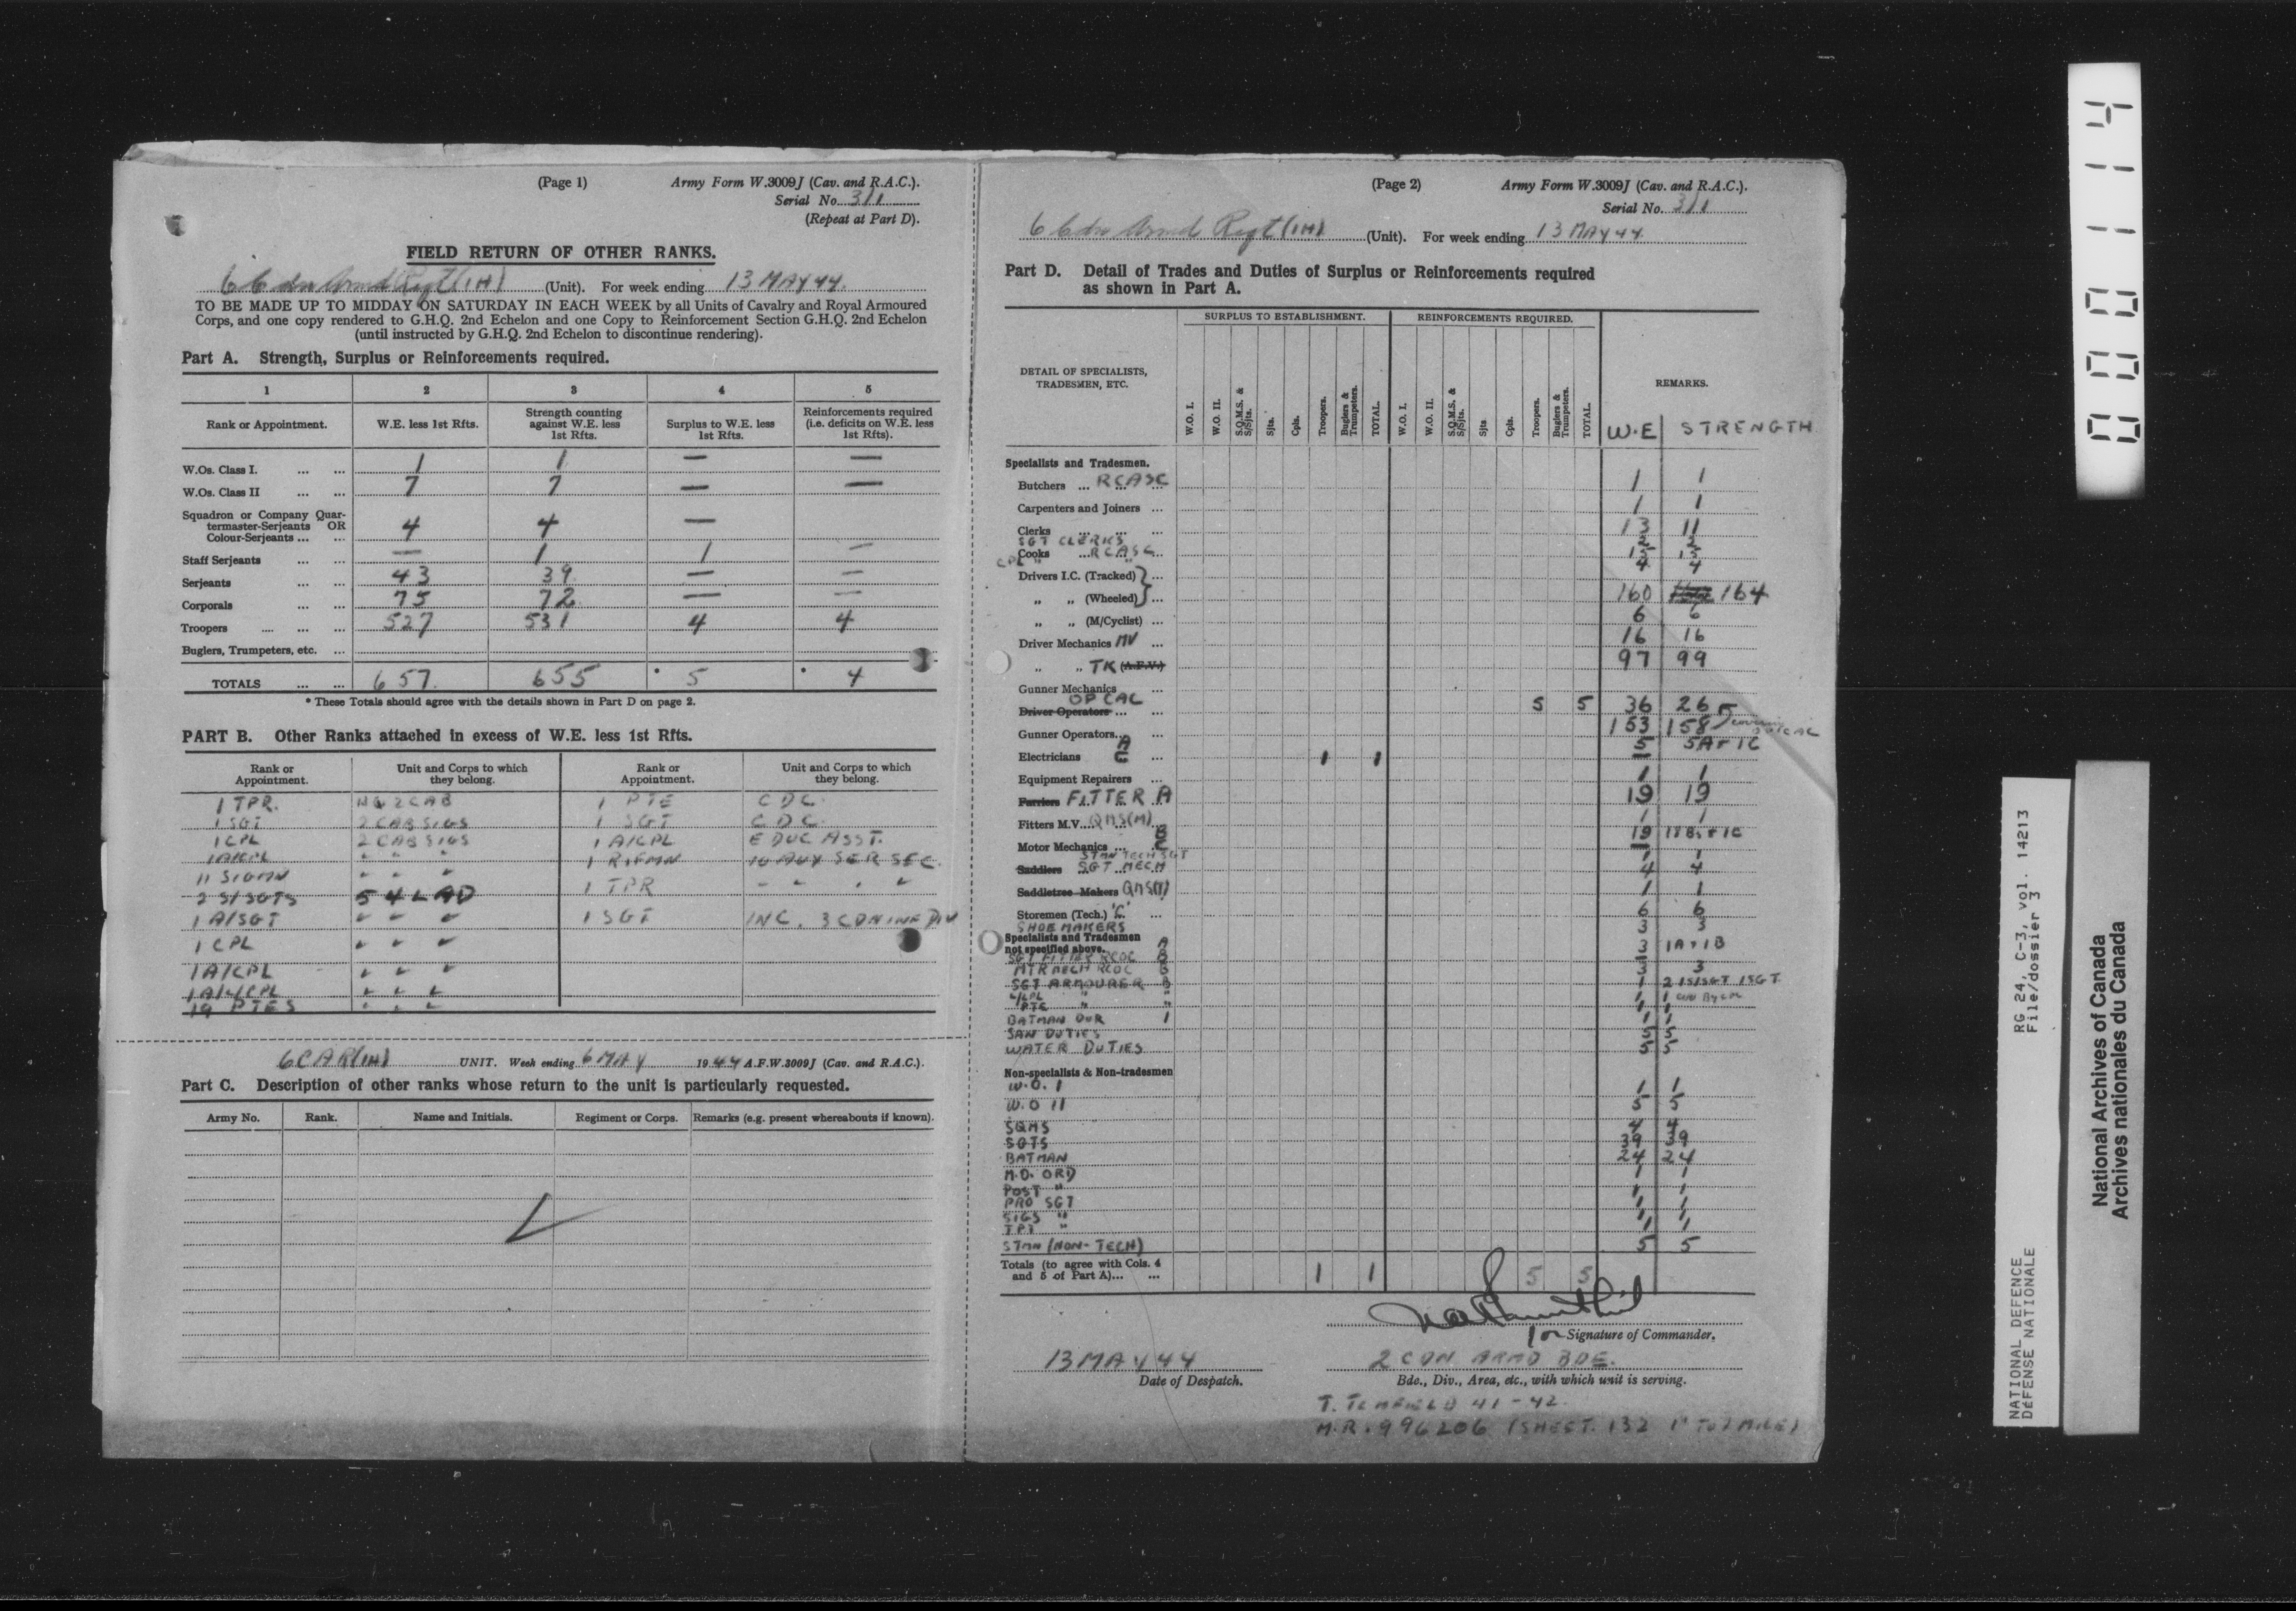 (Page 1) Army Form W.3009J (Cav. and R.A.C.).
Serial No. 3/1
(Repeat at Part D).
FIELD RETURN OF OTHER RANKS.
6 Cdn Armd Regt (1H) (Unit). For week ending 13 MAY 44.
TO BE MADE UP TO MIDDAY ON SATURDAY IN EACH WEEK by all Units of Cavalry and Royal Armoured
Corps, and one copy rendered to G.H.Q. 2nd Echelon and one Copy to Reinforcement Section G.H.Q. 2nd Echelon
(until instructed by G.H.Q. 2nd Echelon to discontinue rendering).
Part A. Strength, Surplus or Reinforcements required.
1 2 3 4 5
Rank or Appointment. W.E. less 1st Rfts. Strength counting against W.E. less 1st Rfts. Surplus to W.E. less 1st Rfts. Reinforcements required (i.e. deficits on W.E. less 1st Rfts).
W.Os. Class I. ... ... 1 1 — —
W.Os. Class II ... ... 7 7 — —
Squadron or Company Quar-
termaster-Serjeants OR
Colour-Serjeants ... ... 4 4 —
Staff Serjeants ... ... — 1 1 —
Serjeants ... ... 43 39 — —
Corporals ... ... 75 72 — —
Troopers .... ... ... 527 531 4 4
Buglers, Trumpeters, etc. ...
TOTALS ... ... 657 655 * 5 * 4
* These Totals should agree with the details shown in Part D on page 2.
PART B. Other Ranks attached in excess of W.E. less 1st Rfts.
Rank or Appointment. Unit and Corps to which they belong. Rank or Appointment. Unit and Corps to which they belong.
1 TPR. HQ 2 CAB 1 PTE CDC.
1 SGT 2 CAB SIGS 1 SGT CDC.
1 CPL 2 CAB SIGS 1 A/CPL EDUC ASST.
1 A/CPL " " " 1 RIFMN 10 AUX SER SEC.
11 SIGMN " " " 1 TPR " " " "
2 S/SGTS 54 LAD
1 A/SGT " " " 1 SGT INC. 3 CDN INF DIV
1 CPL " " "
1 A/CPL " " "
1 A/L/CPL " " "
19 PTES " " "
6 CAR (1H) UNIT. Week ending 6 MAY 1944 A.F.W.3009J (Cav. and R.A.C.).
Part C. Description of other ranks whose return to the unit is particularly requested.
Army No. Rank. Name and Initials. Regiment or Corps. Remarks (e.g. present whereabouts if known).
(Page 2) Army Form W.3009J (Cav. and R.A.C.).
Serial No. 3/1
6 Cdn Armd Regt (1H) (Unit). For week ending 13 MAY 44
Part D. Detail of Trades and Duties of Surplus or Reinforcements required
as shown in Part A.
SURPLUS TO ESTABLISHMENT. REINFORCEMENTS REQUIRED.
DETAIL OF SPECIALISTS, TRADESMEN, ETC. W.O. I. W.O. II. S.Q.M.S. & S/Sjts. Sjts. Cpls. Troopers. Buglers & Trumpeters. TOTAL. W.O. I. W.O. II. S.Q.M.S. & S/Sjts. Sjts Cpls. Troopers. Buglers & Trumpeters. TOTAL. REMARKS.
W.E STRENGTH
Specialists and Tradesmen.
Butchers ... RCASC 1 1
Carpenters and Joiners ... 1 1
Clerks ... ... ... 13 11
SGT CLERKS 2 2
Cooks ... RCASC 15 15
CPL " " 4 4
Drivers I.C. (Tracked) ...
" " (Wheeled) ... 160 164
" " (M/Cyclist) ... 6 6
Driver Mechanics MV ... 16 16
" " TK (A.F.V.) 97 99
Gunner Mechanics ...
OP CAC
Driver Operators ... ... 5 5 36 26
Gunner Operators.. ... 153 158
Electricians A C ... 1 1 5 5A + 1C
Equipment Repairers ... 1 1
Farriers FITTER A 19 19
Fitters M.V.... QMS(M) 1 1
Motor Mechanics ... B C 19 17Bs + 1C
STMN TECH SGT 1 1
Saddlers SGT MECH 4 4
Saddletree Makers QMS(T) 1 1
Storemen (Tech.) 'C' ... 6 6
SHOEMAKERS 3 3
Specialists and Tradesmen
not specified above. A
SGT FITTER RCOC B 3 1A + 1B
MTR MECH RCOC B 3 3
SGT ARMOURER B 1 2 1S/SGT 1SGT
L/CPL " " 1 1
PTE " " 1 1
BATMAN DVR 1 1 1
SAN DUTIES 5 5
WATER DUTIES 5 5
Non-specialists & Non-tradesmen
W.O. I 1 1
W.O II 5 5
SQMS 4 4
SGTS 39 39
BATMAN 24 24
M.O. ORD 1 1
POST " 1 1
PRO SGT 1 1
SIGS " 1 1
TPT " 1 1
STMN (NON-TECH) 5 5
Totals (to agree with Cols. 4
and 5 of Part A)... ... 1 1 5 5
for Signature of Commander.
13 MAY 44 2 CDN ARMD BDE.
Date of Despatch. Bde., Div., Area, etc., with which unit is serving.
M.R. 996206 (SHEET. 132 1" TO 1 MILE)
0001114
NATIONAL DEFENCE RG 24, C-3, vol. 14213
DEFENSE NATIONALE File/dossier 3
National Archives of Canada
Archives nationales du Canada